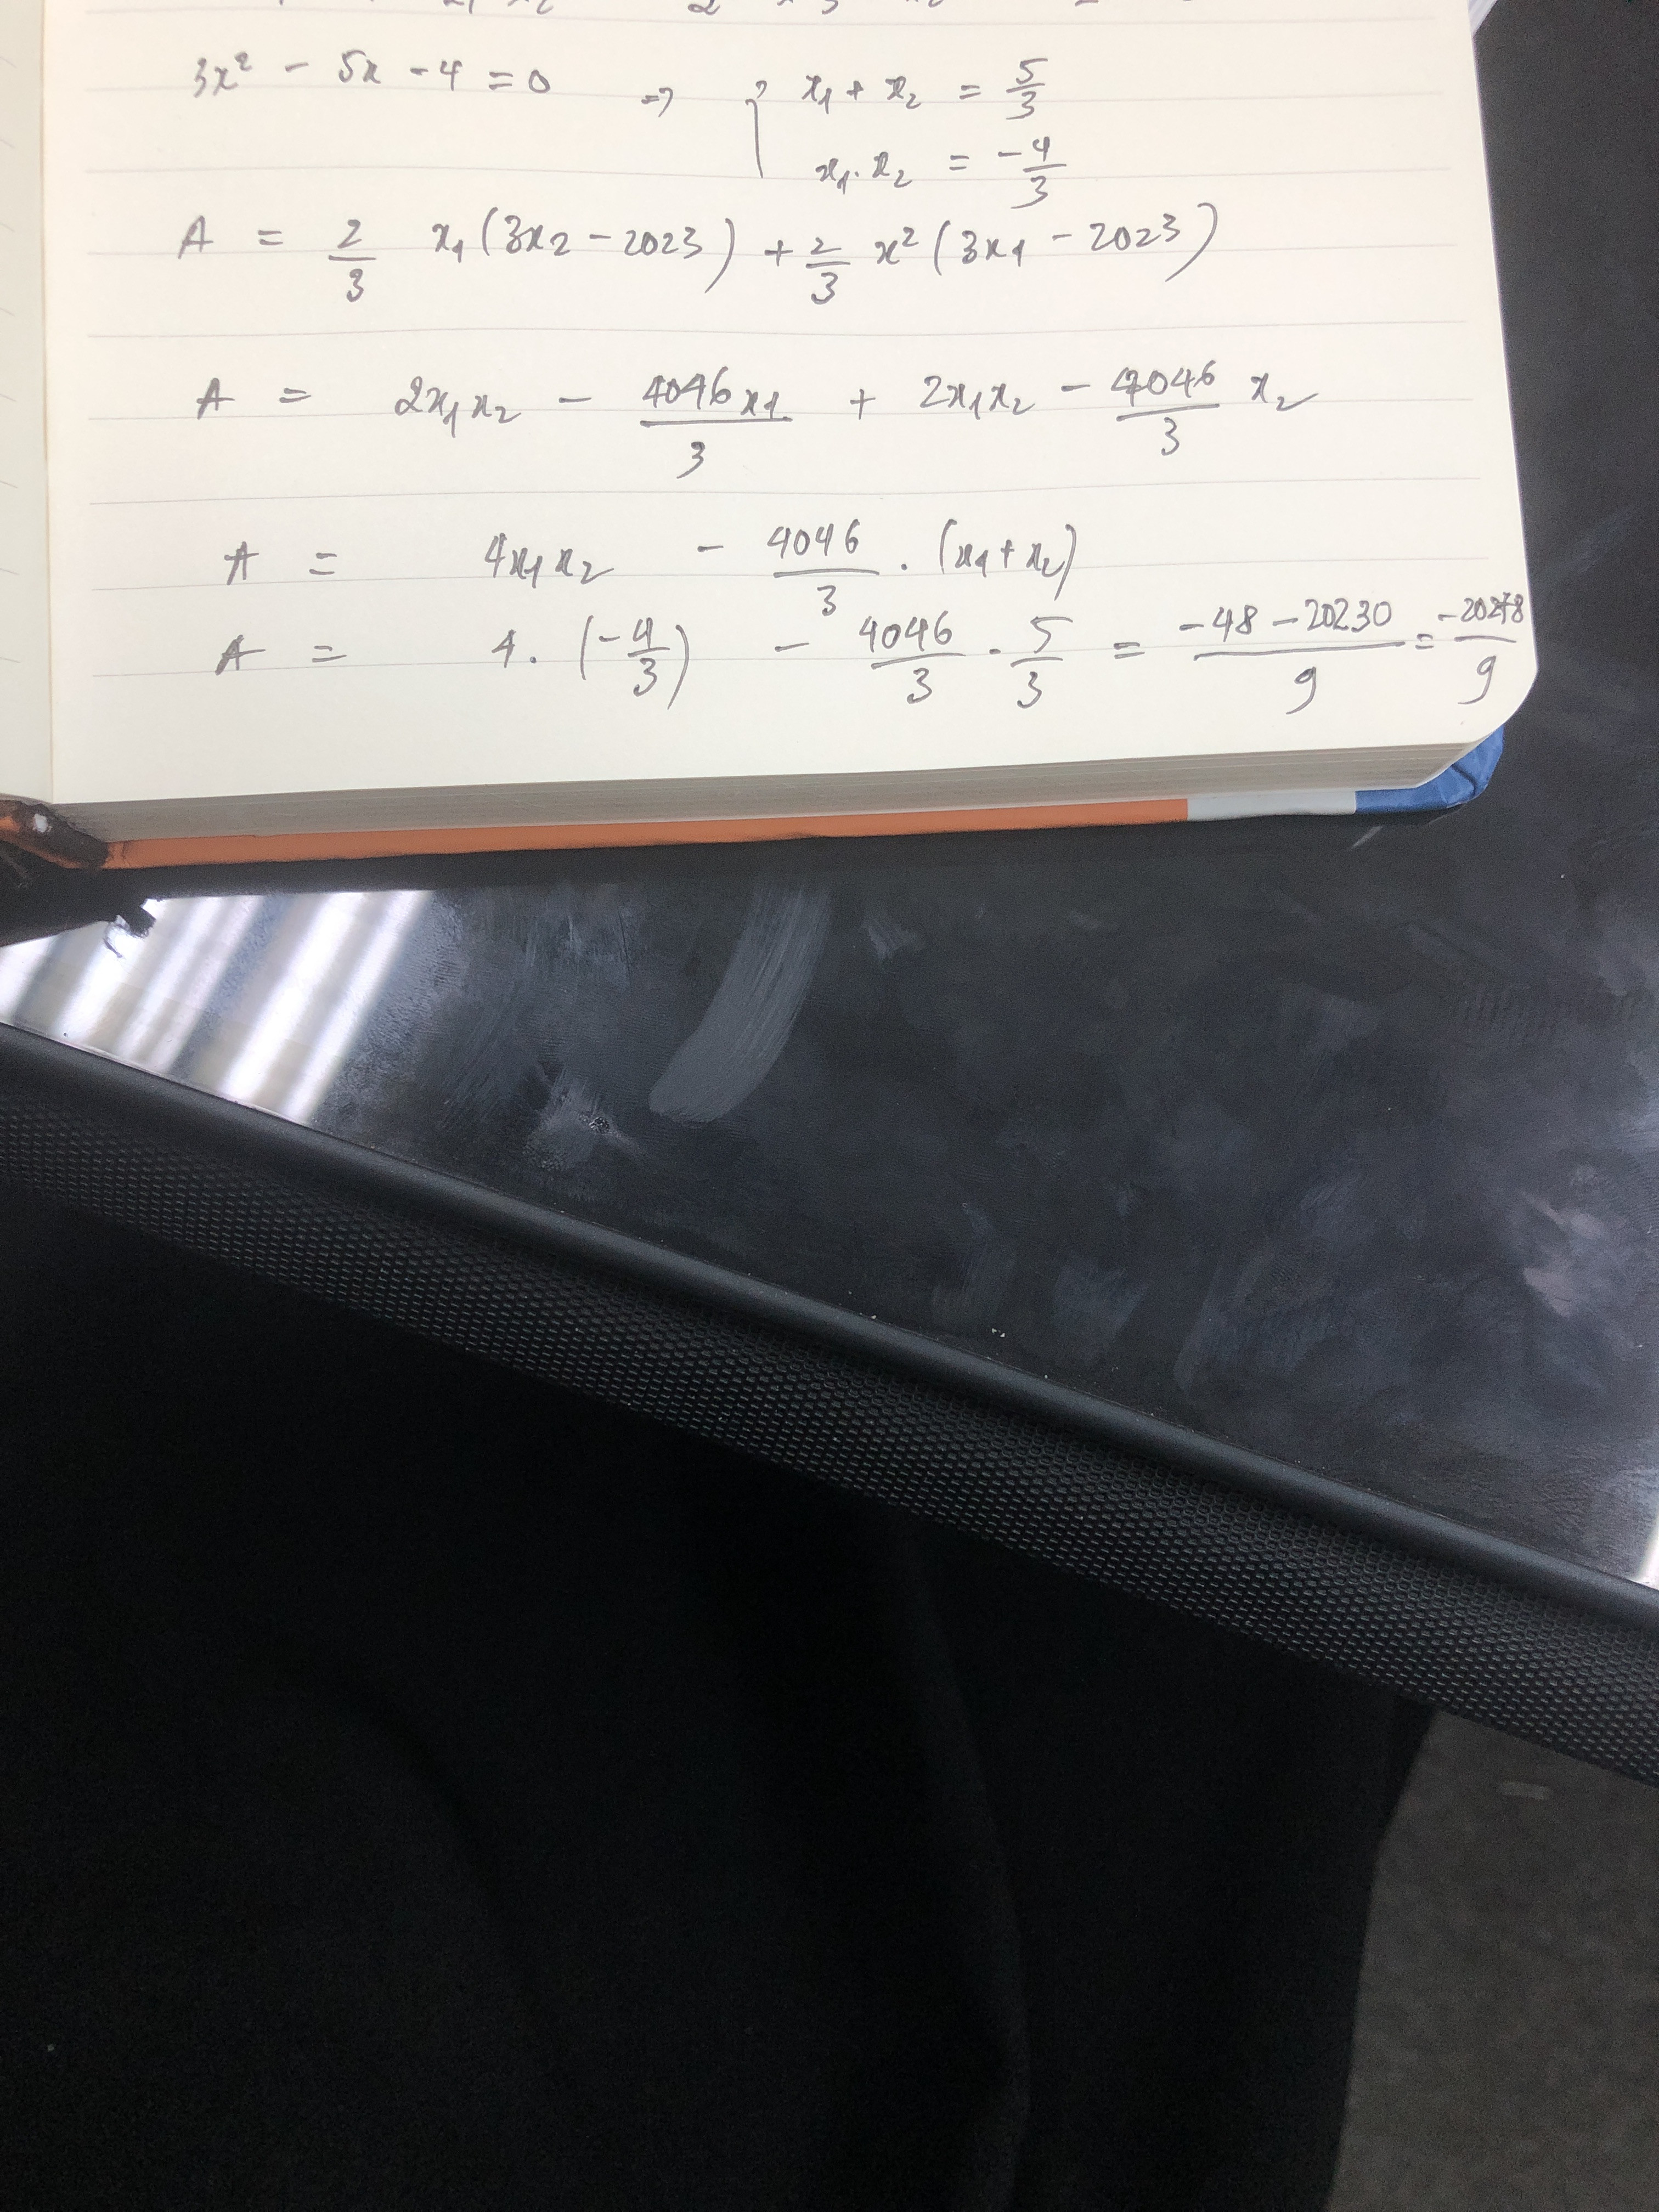 3x² - 5x - 4 = 0 => { x₁ + x₂ = 5/3
x₁ . x₂ = -4/3
A = 2/3 x₁(3x₂ - 2023) + 2/3 x²(3x₁ - 2023)
A = 2x₁x₂ - 4046x₁/3 + 2x₁x₂ - 4046/3 x₂
A = 4x₁x₂ - 4046/3 . (x₁ + x₂)
A = 4. (-4/3) - 4046/3 . 5/3 = -48 - 20230/9 = -20278/9